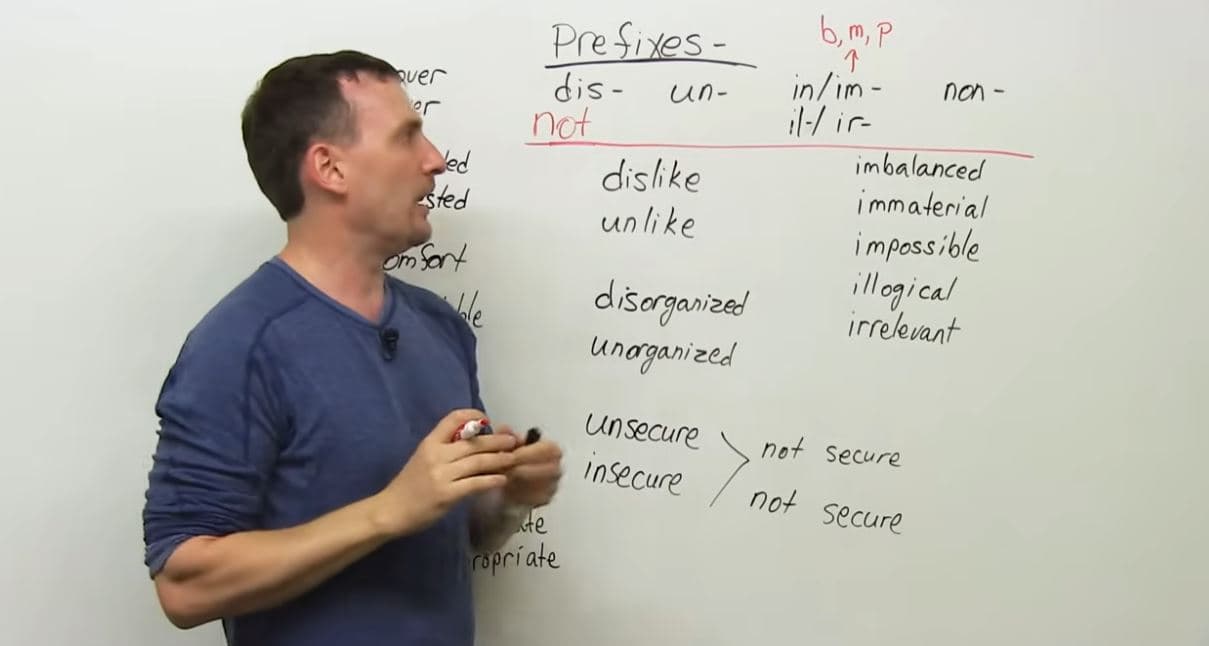 Prefixes-
b, m, p
dis- un- in/im- non-
not il-/ir-
dislike
unlike
disorganized
unorganized
unsecure
insecure
not secure
not secure
imbalanced
immaterial
impossible
illogical
irrelevant